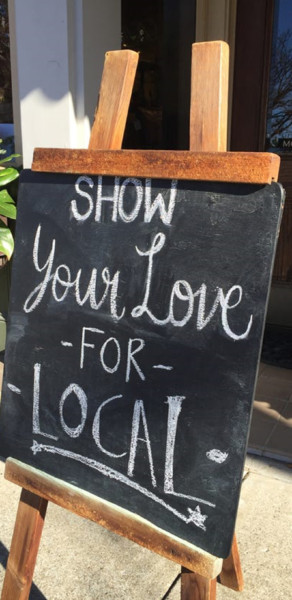 SHOW
Your Love
-FOR-
-LOCAL-